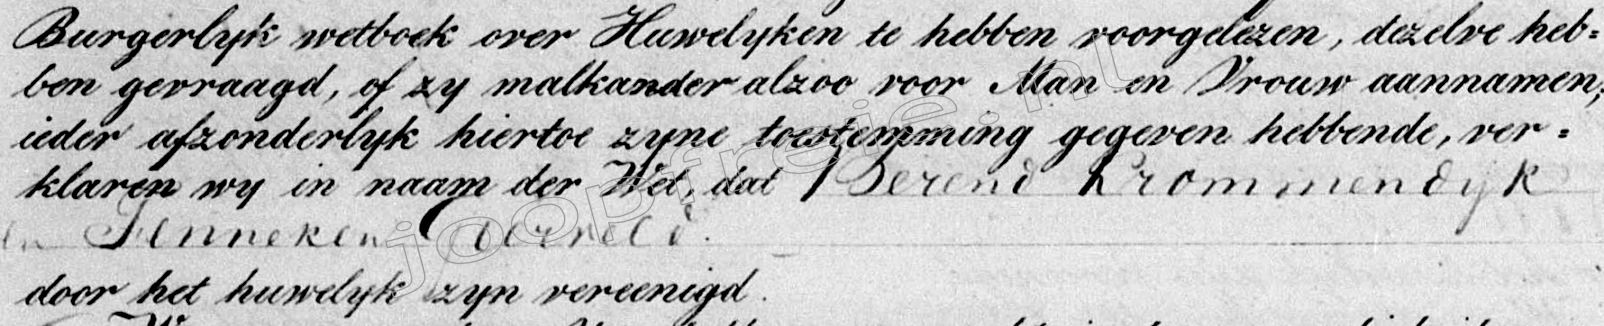 Burgerlyk wetboek over Huwelyken te hebben voorgelezen, dezelve heb=
ben gevraagd, of zy malkander alzoo voor Man en Vrouw aannamen,
ieder afzonderlyk hiertoe zyne toestemming gegeven hebbende, ver=
klaren wy in naam der Wet, dat Berend Krommendyk
en Fenneken
door het huwelyk zyn vereenigd.
joopfreie.nl